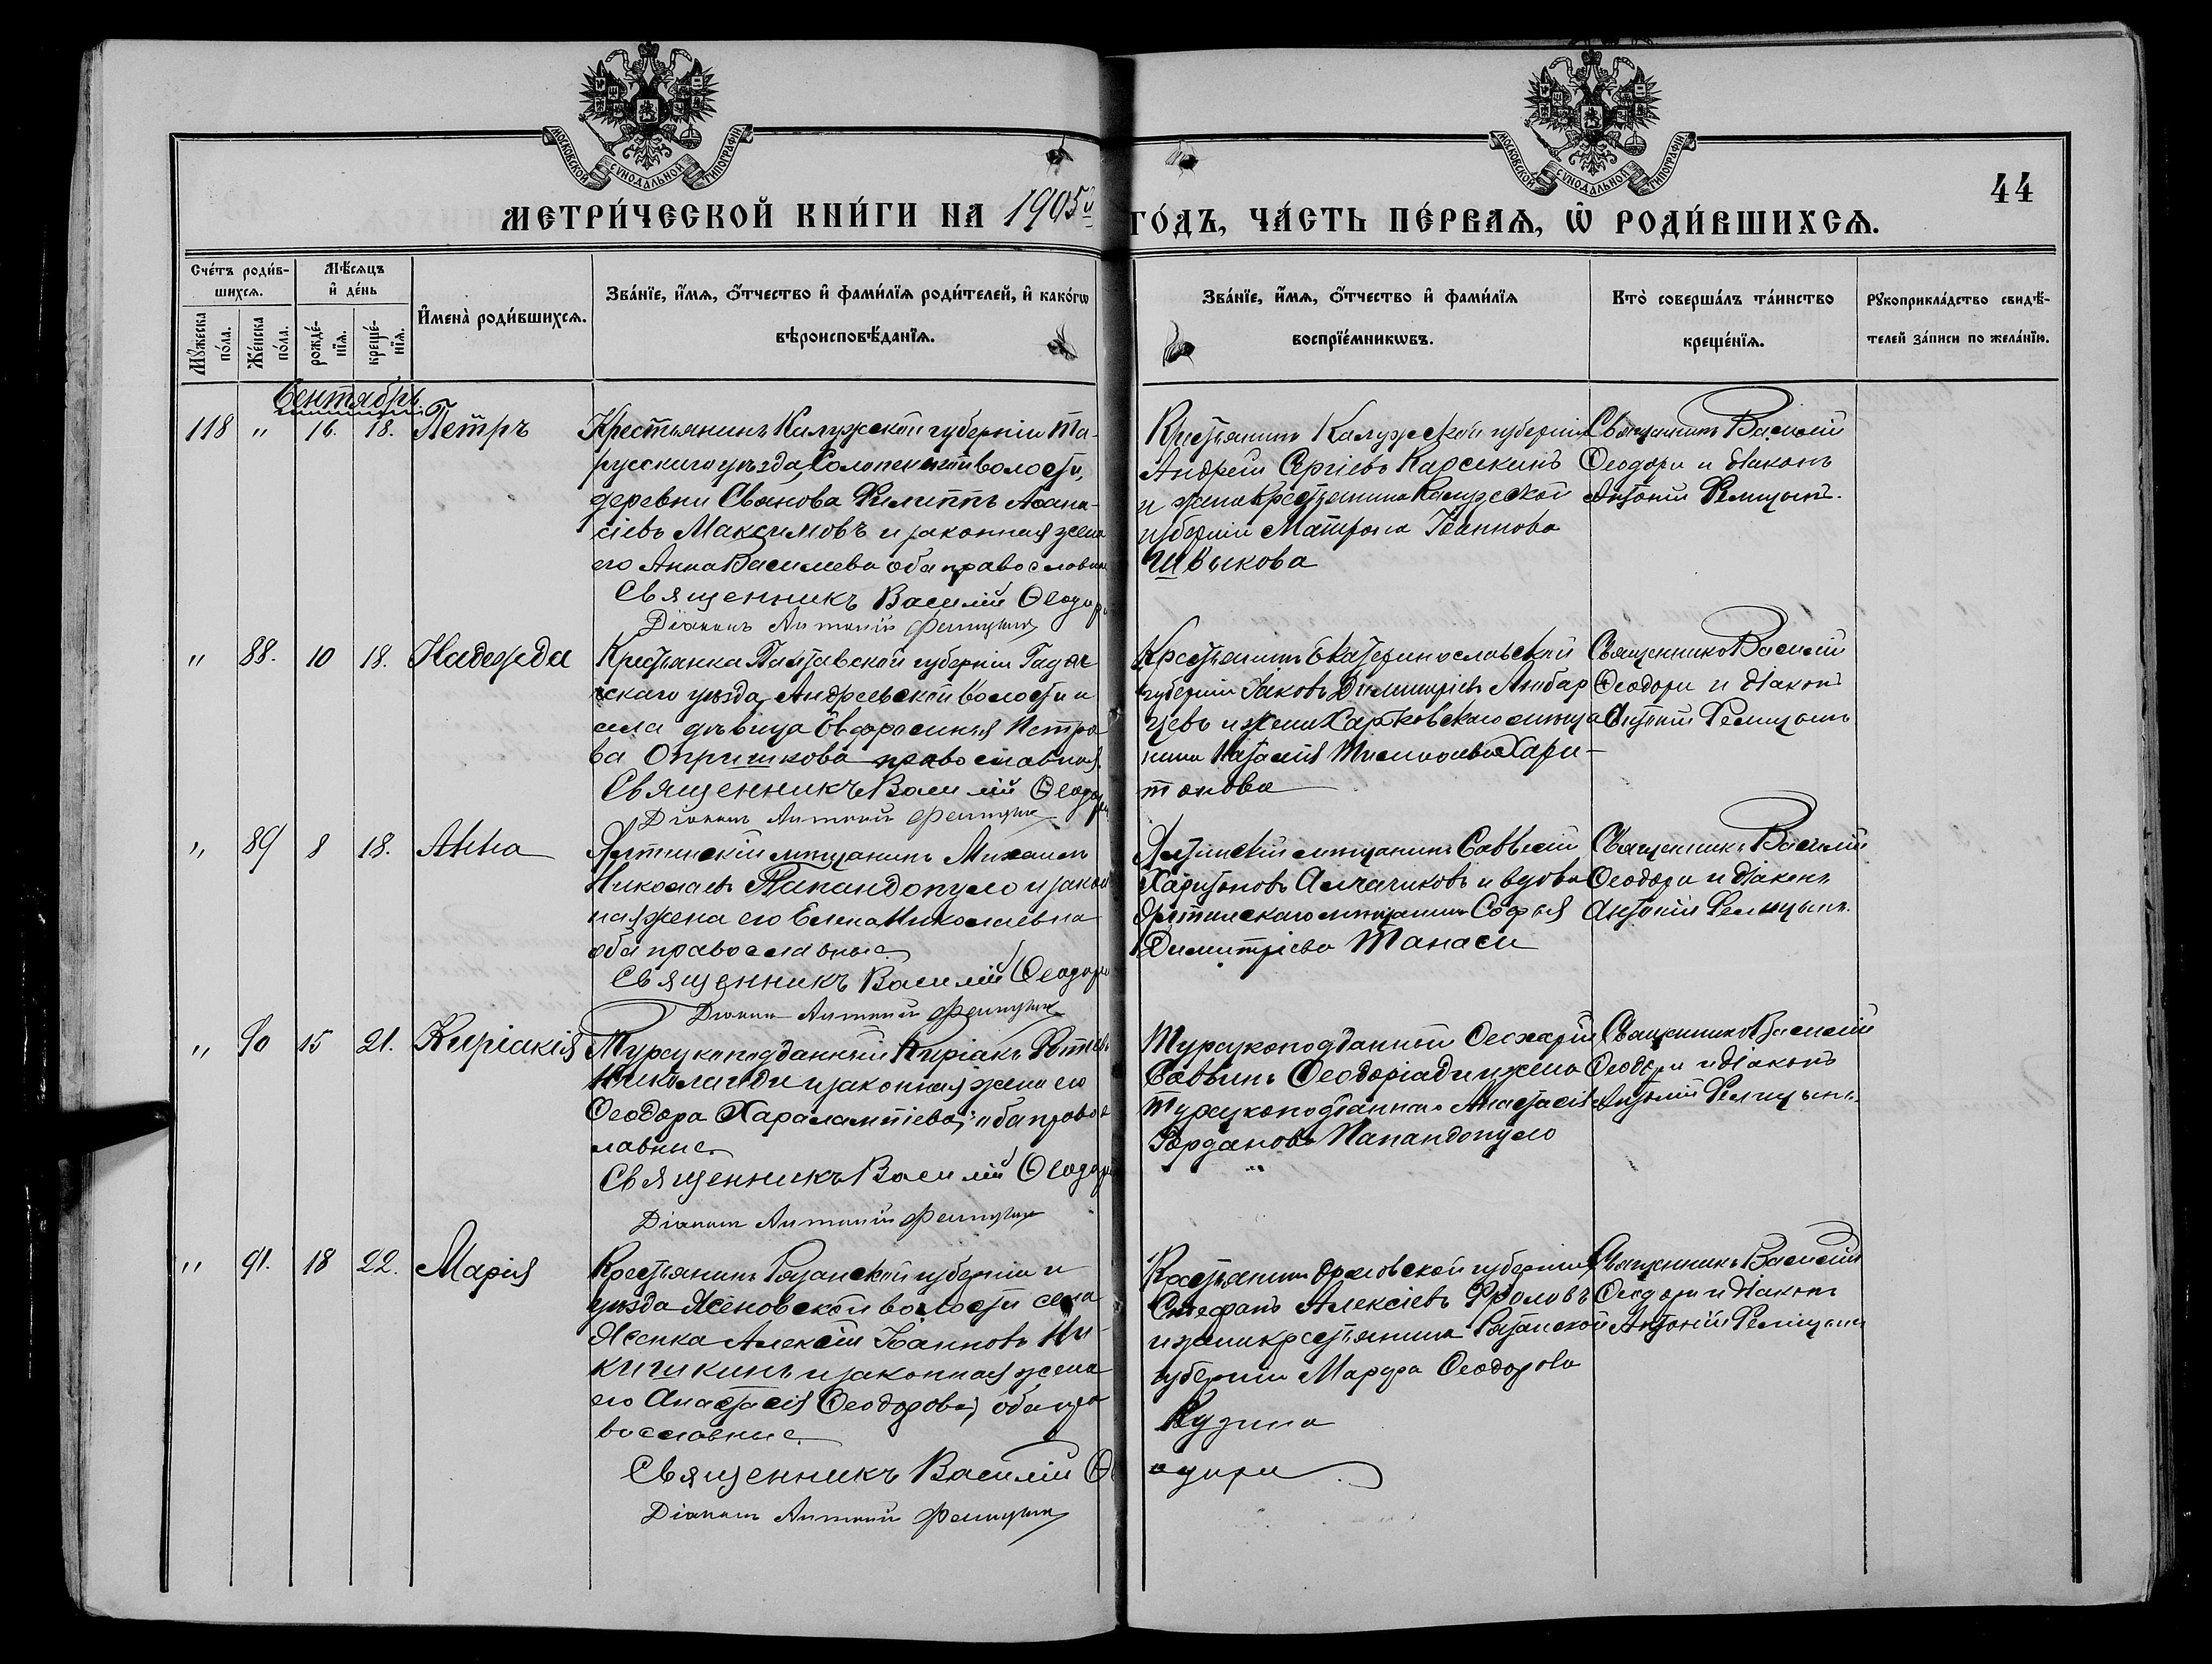 МОСКОВСКОЙ СѴНОДАЛЬНОЙ ТИПОГРАФІИ
МОСКОВСКОЙ СѴНОДАЛЬНОЙ ТИПОГРАФІИ
44
МЕТРИ́ЧЕСКОЙ КНИ́ГИ НА 1905й ГО́ДЪ, ЧА́СТЬ ПЕ́РВАѦ, Ѡ҆ РОДИ́ВШИХСѦ.
Сче́тъ роди́в-
шихсѧ.
Мѣ́сѧцъ
и҆ де́нь
Мꙋ́жеска
по́ла.
Же́нска
по́ла.
рожде́-
нїѧ.
креще́-
нїѧ.
И҆мена̀ роди́вшихсѧ.
Зва́нїе, и҆́мѧ, ѻ҆́тчество и҆ фами́лїѧ роди́телей, и҆ како́гѡ
вѣроисповѣ́данїѧ.
Зва́нїе, и҆́мѧ, ѻ҆́тчество и҆ фами́лїѧ
воспрїе́мникѡвъ.
Кто̀ соверша́лъ та́инство
креще́нїѧ.
Рꙋкоприкла́дство свидѣ́-
телей за́писи по жела́нїю.
Сентябрь
118 " 16. 18. Петръ
Крестьянинъ Калужской губерніи Та-
русскаго уѣзда, Солопенской волости,
деревни Сванова Филиппъ Аѳана-
сіевъ Максимовъ и законная жена
его Анна Василіева оба православные
Священникъ Василій Ѳеодори
Діаконъ Антоній
Крестьянинъ Калужской губерніи
Андрей Сергіевъ Карсекинъ
и жена крестьянина Калужской
губерніи Матрона Іоаннова
Швыкова
Священникъ Василій
Ѳеодори и діаконъ
Антоній
" 88. 10 18. Надежда
Крестьянка Полтавской губерніи Гадяч-
скаго уѣзда, Андреевской волости и
села дѣвица Евфросинія Петро-
ва Опришкова православная.
Священникъ Василій Ѳеодори
Діаконъ Антоній
Крестьянинъ Екатеринославской
губерніи Іаковъ Димитріевъ Амбар
цевъ и жена Харьковскаго мѣща
нина Наталія Хари-
тонова
Священникъ Василій
Ѳеодори и діаконъ
Антоній
" 89 8 18. Анна
Ялтинскій мѣщанинъ Михаилъ
Николаевъ Папандопуло и закон
ная жена его Елена Николаевна
оба православные.
Священникъ Василій Ѳеодори
Діаконъ Антоній
Ялтинскій мѣщанинъ Савелій
Харитоновъ Алчачиковъ и вдова
мѣщанина Софья
Димитріева Танаси
Священникъ Василій
Ѳеодори и діаконъ
Антоній
" 90 15 21. Киріакія
Турецкоподданный Киріакъ
Николаиди и законная жена его
Ѳеодора Харалампіева, оба правос
лавные.
Священникъ Василій Ѳеодори
Діаконъ Антоній
Турецкоподданный
Саввинъ Ѳеодоріади и жена
турецкоподданнаго Анастасія
Іорданова Папандопуло
Священникъ Василій
Ѳеодори и діаконъ
Антоній
" 91. 18 22. Марія
Крестьянинъ Рязанской губерніи и
уѣзда Ясеновской волости села
Ясенка Алексій Іоанновъ Ни-
кишкинъ и законная жена
его Анастасія Ѳеодорова, оба пра
вославные.
Священникъ Василій Ѳеодори
Діаконъ Антоній
Крестьянинъ Орловской губерніи
Стефанъ Алексіевъ Фроловъ
и жена крестьянина Рязанской
губерніи Марфа Ѳеодорова
Кузина
Священникъ Василій
Ѳеодори и діаконъ
Антоній